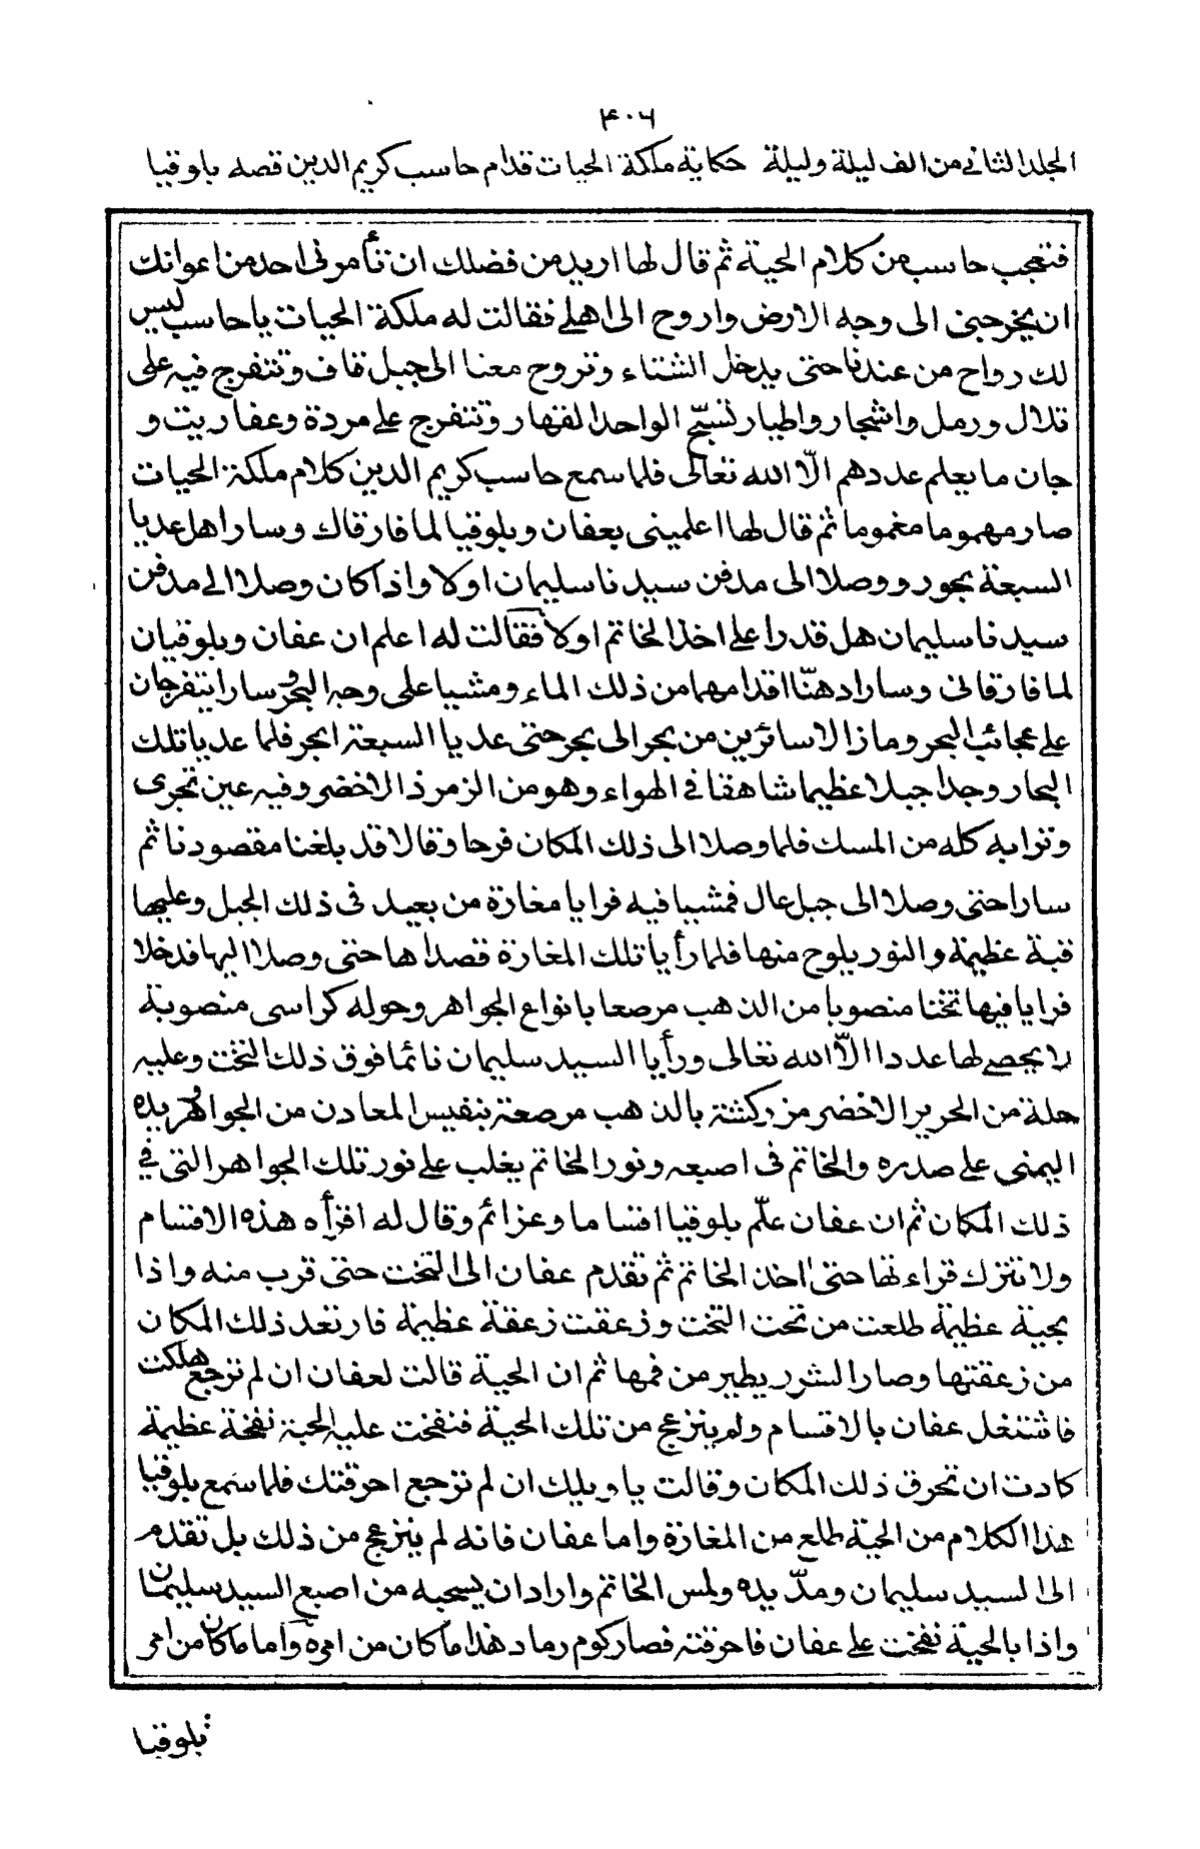 ۴۰۶
المجلد الثاني من الف ليلة وليلة حكاية ملكة الحيات قدام حاسب كريم الدين قصه بلوقيا
فتعجب حاسب من كلام الحية ثم قال لها اريد من فضلك ان تأمرى احد من اعوانك
ان يخرجنى الى وجه الارض واروح الى اهلى فقالت له ملكة الحيات يا حاسب ليس
لك رواح من عندنا حتى يدخل الشتاء وتروح معنا الى جبل قاف وتتفرج فيه على
تلال ورمل واشجار واطيار تسبّح الواحد القهار وتتفرج على مردة وعفاريت و
جان ما يعلم عددهم الّا الله تعالى فلما سمع حاسب كريم الدين كلام ملكة الحيات
صار مهموما مغموما ثم قال لها اعلمينى بعفان وبلوقيا لما فارقاك وسارا هل عديا
السبعة بحور ووصلا الى مدفن سيدنا سليمان اولا واذا كان وصلا الى مدفن
سيدنا سليمان هل قدرا على اخذ الخاتم اولا فقالت له اعلم ان عفان وبلوقيان
لما فارقانى وسارا دهنّا اقدامهما من ذلك الماء ومشيا على وجه البحر وسارا يتفرجان
على عجائب البحر وما زالا سائرين من بحر الى بحر حتى عديا السبعة ابحر فلما عديا تلك
البحار وجدا جبلا عظيما شاهقا فى الهواء وهو من الزمرذ الاخضر وفيه عين تجرى
وترابه كله من المسك فلما وصلا الى ذلك المكان فرحا وقالا قد بلغنا مقصودنا ثم
سارا حتى وصلا الى جبل عال فمشيا فيه فرايا مغارة من بعيد فى ذلك الجبل وعليها
قبة عظيمة والنور يلوح منها فلما رأيا تلك المغارة قصداها حتى وصلا اليها فدخلا
فرايا فيها تختا منصوبا من الذهب مرصعا بانواع الجواهر وحوله كراسى منصوبة
لا يحصى لها عددا الّا الله تعالى ورأيا السيد سليمان نائما فوق ذلك التخت وعليه
حلة من الحرير الاخضر مزركشة بالذهب مرصعة بنفيس المعادن من الجواهر ويده
اليمنى على صدره والخاتم فى اصبعه ونور الخاتم يغلب على نور تلك الجواهر التى فى
ذلك المكان ثم ان عفان علّم بلوقيا اقساما وعزائم وقال له اقرأه هذه الاقسام
ولا تترك قراءتها حتى اخذ الخاتم ثم تقدم عفان الى التخت حتى قرب منه واذا
بحية عظيمة طلعت من تحت التخت وزعقت زعقة عظيمة فارتعد ذلك المكان
من زعقتها وصار الشرر يطير من فمها ثم ان الحية قالت لعفان ان لم ترجع هلكت
فاشتغل عفان بالاقسام ولم ينزعج من تلك الحية فنفخت عليه الحية نفخة عظيمة
كادت ان تحرق ذلك المكان وقالت يا ويلك ان لم ترجع احرقتك فلما سمع بلوقيا
هذا الكلام من الحية طلع من المغارة واما عفان فانه لم ينزعج من ذلك بل تقدم
الى السيد سليمان ومدّ يده ولمس الخاتم واراد ان يسحبه من اصبع السيد سليمان
واذا بالحية نفخت على عفان فاحرقته فصار كوم رماد هذا ما كان من امره واما ما كان من امر
بلوقيا